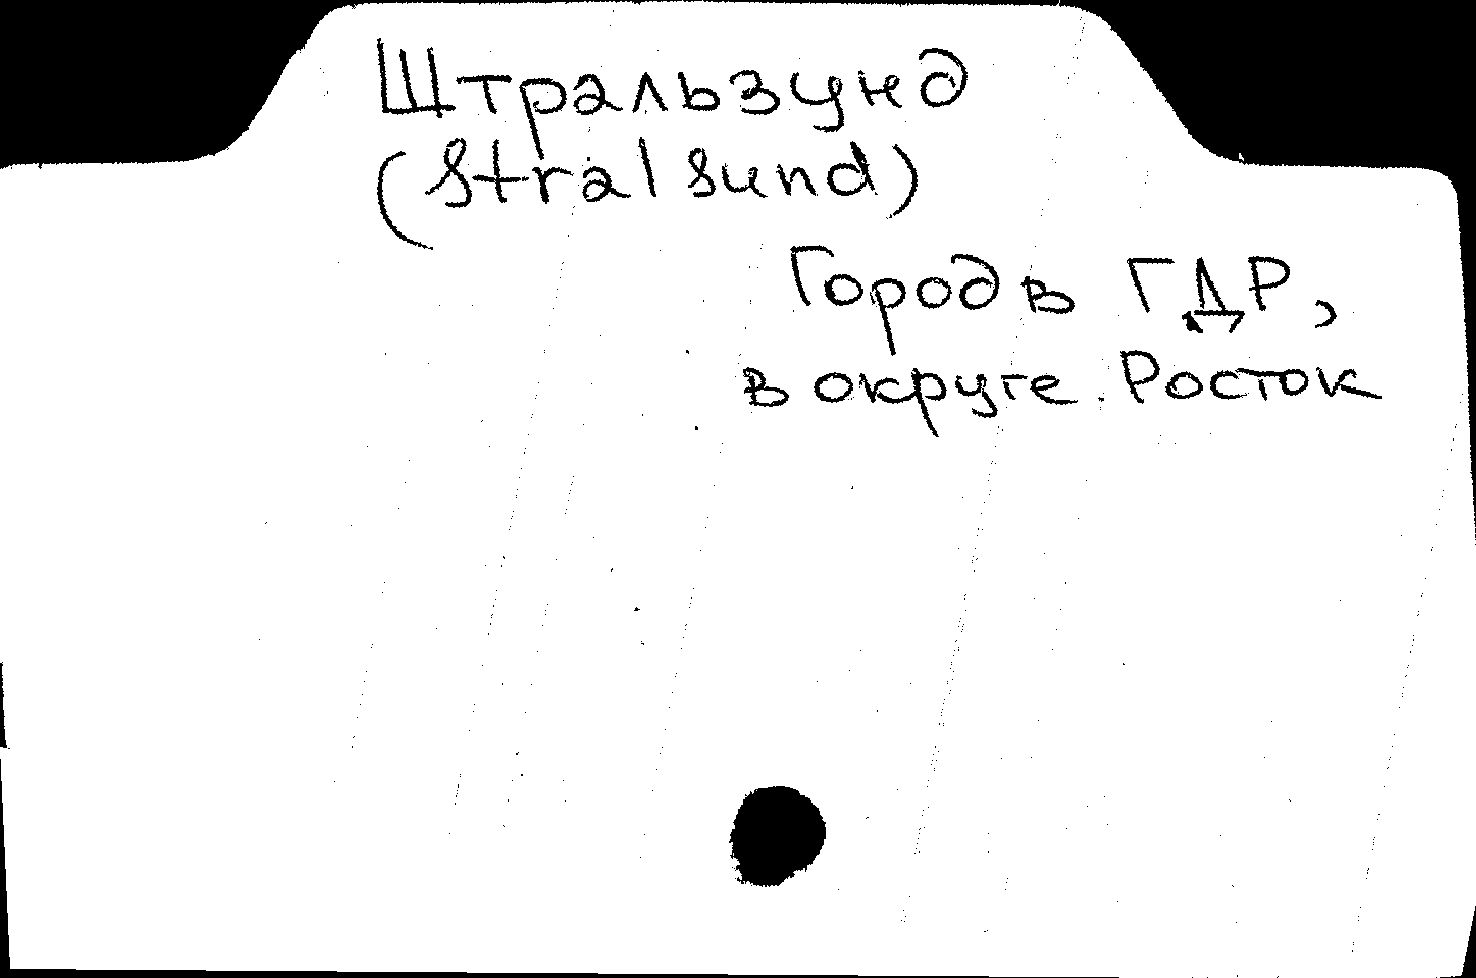 Штральзунд
(Stralsund)
Город в ГДР,
в округе Росток